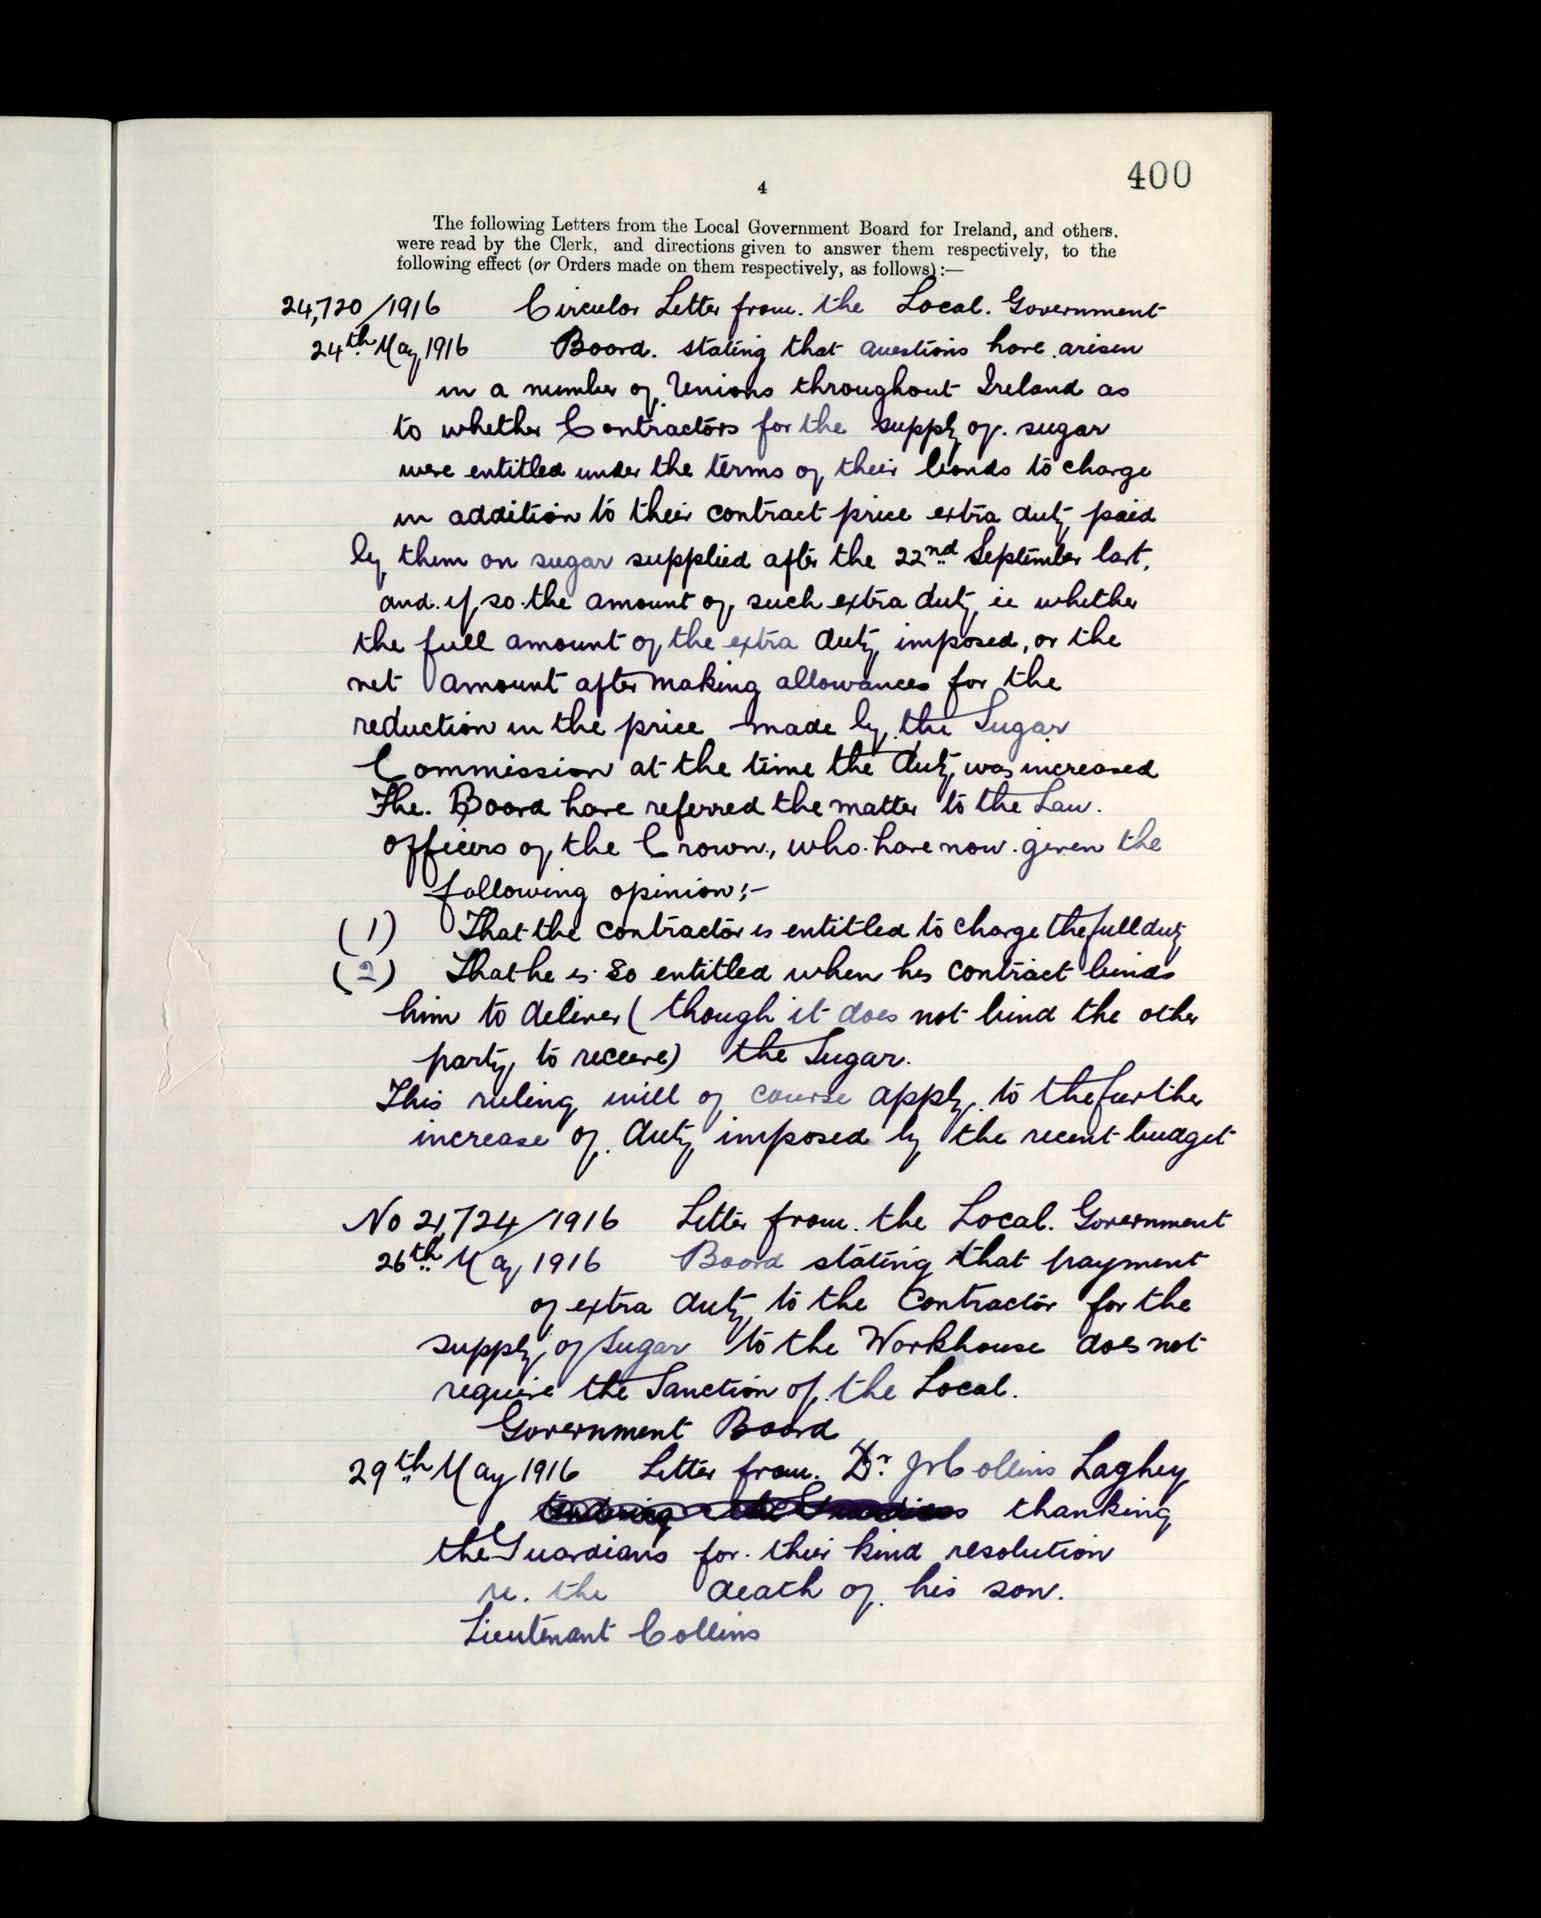 400
4
The following Letters from the Local Government Board for Ireland, and others,
were read by the Clerk, and directions given to answer them respectively, to the
following effect (or Orders made on them respectively, as follows):—
24,720/1916 Circular Letter from. the Local. Government
24th May 1916 Board. stating that questions have arisen
in a number of Unions throughout Ireland as
to whether Contractors for the supply of. sugar
were entitled under the terms of their bonds to charge
in addition to their contract price extra duty paid
by them on sugar supplied after the 22nd September last,
and if so the amount of such extra duty ie whether
the full amount of the extra duty imposed, or the
net amount after making allowances for the
reduction in the price made by the Sugar
Commission at the time the duty was increased
The. Board have referred the matter to the Law.
officers of the Crown, who have now given the
following opinion:-
(1) That the contractor is entitled to charge the full duty
(2) That he is so entitled when his contract binds
him to deliver (though it does not bind the other
party to receive) the Sugar.
This ruling will of course apply to the further
increase of duty imposed by the recent budget
No 21,724/1916 Letter from. the Local. Government
26th May 1916 Board stating that payment
of extra duty to the Contractor for the
supply of Sugar to the Workhouse does not
require the Sanction of the Local.
Government Board
29th May 1916 Letter from. Dr. Collins Laghey
thanking
the Guardians for their kind resolution
re. the death of his son.
Lieutenant Collins